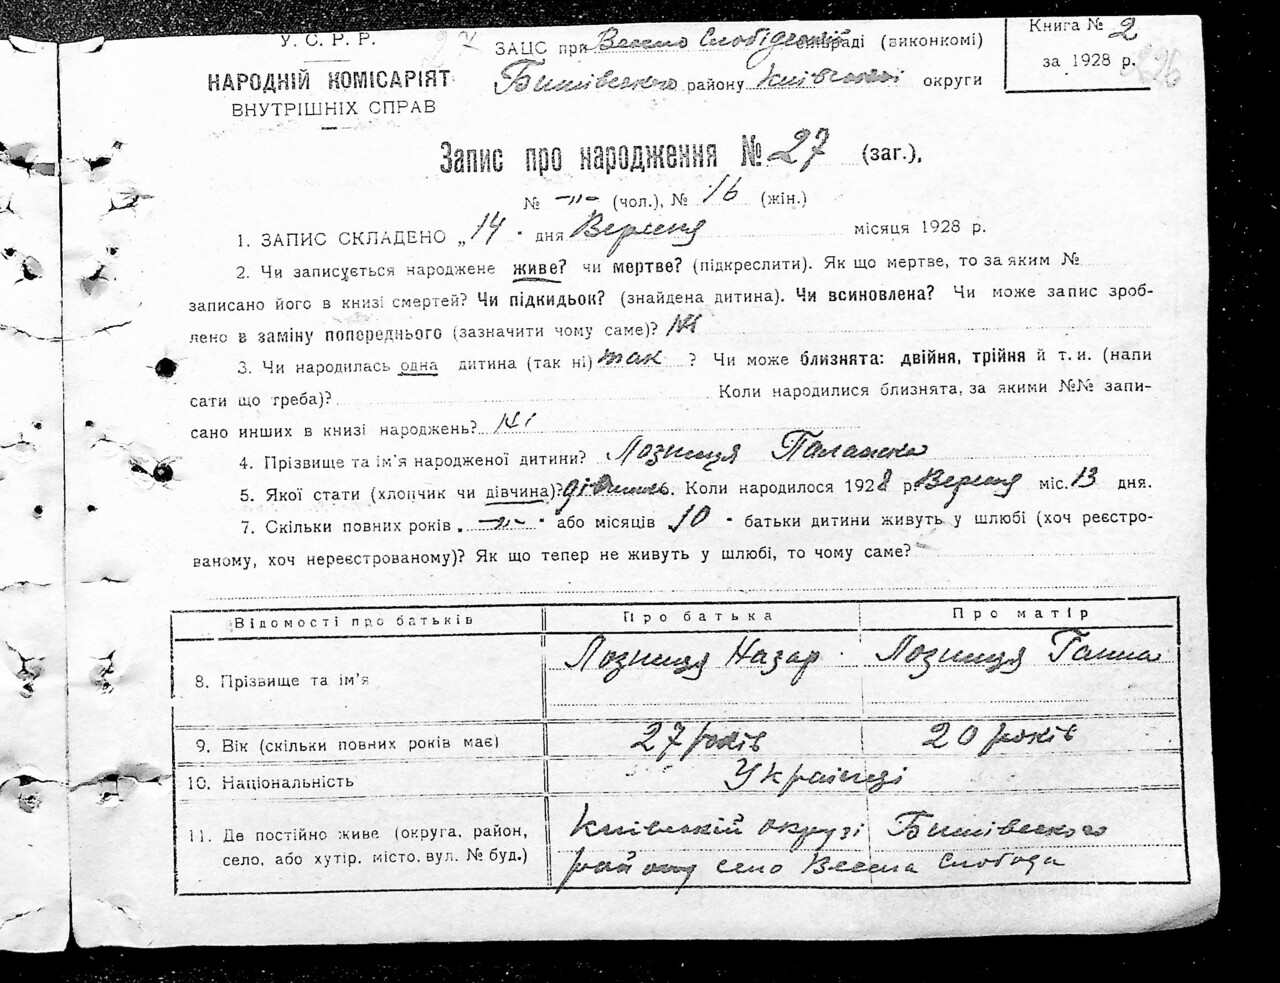 У. С. Р. Р.
НАРОДНІЙ КОМІСАРІЯТ
ВНУТРІШНІХ СПРАВ
ЗАЦС при Весело Слобідській сільраді (виконкомі)
Бишівського району Київської округи
Книга № 2
за 1928 р.
Запис про народження № 27 (заг.),
№ —"— (чол.), № 16 (жін.)
1. ЗАПИС СКЛАДЕНО „14" дня Вересня місяця 1928 р.
2. Чи записується народжене живе? чи мертве? (підкреслити). Як що мертве, то за яким №
записано його в книзі смертей? Чи підкидьок? (знайдена дитина). Чи всиновлена? Чи може запис зроб-
лено в заміну попереднього (зазначити чому саме)? Ні
3. Чи народилась одна дитина (так ні) так ? Чи може близнята: двійня, трійня й т. и. (напи
сати що треба)? Коли народилися близнята, за якими №№ запи-
сано инших в книзі народжень? Ні
4. Прізвище та ім'я народженої дитини? Лозниця Палажка
5. Якої стати (хлопчик чи дівчина)? дівчина. Коли народилося 1928 р. Вересня міс. 13 дня.
7. Скільки повних років „—"—" або місяців 10 " батьки дитини живуть у шлюбі (хоч реєстро-
ваному, хоч нереєстрованому)? Як що тепер не живуть у шлюбі, то чому саме? —
Відомості про батьків Про батька Про матір
8. Прізвище та ім'я Лозниця Назар Лозниця Ганна
9. Вік (скільки повних років має) 27 років 20 років
10. Національність Українці
11. Де постійно живе (округа, район, Київській округі Бишівського
село, або хутір. місто. вул. № буд.) району село Весела Слобода